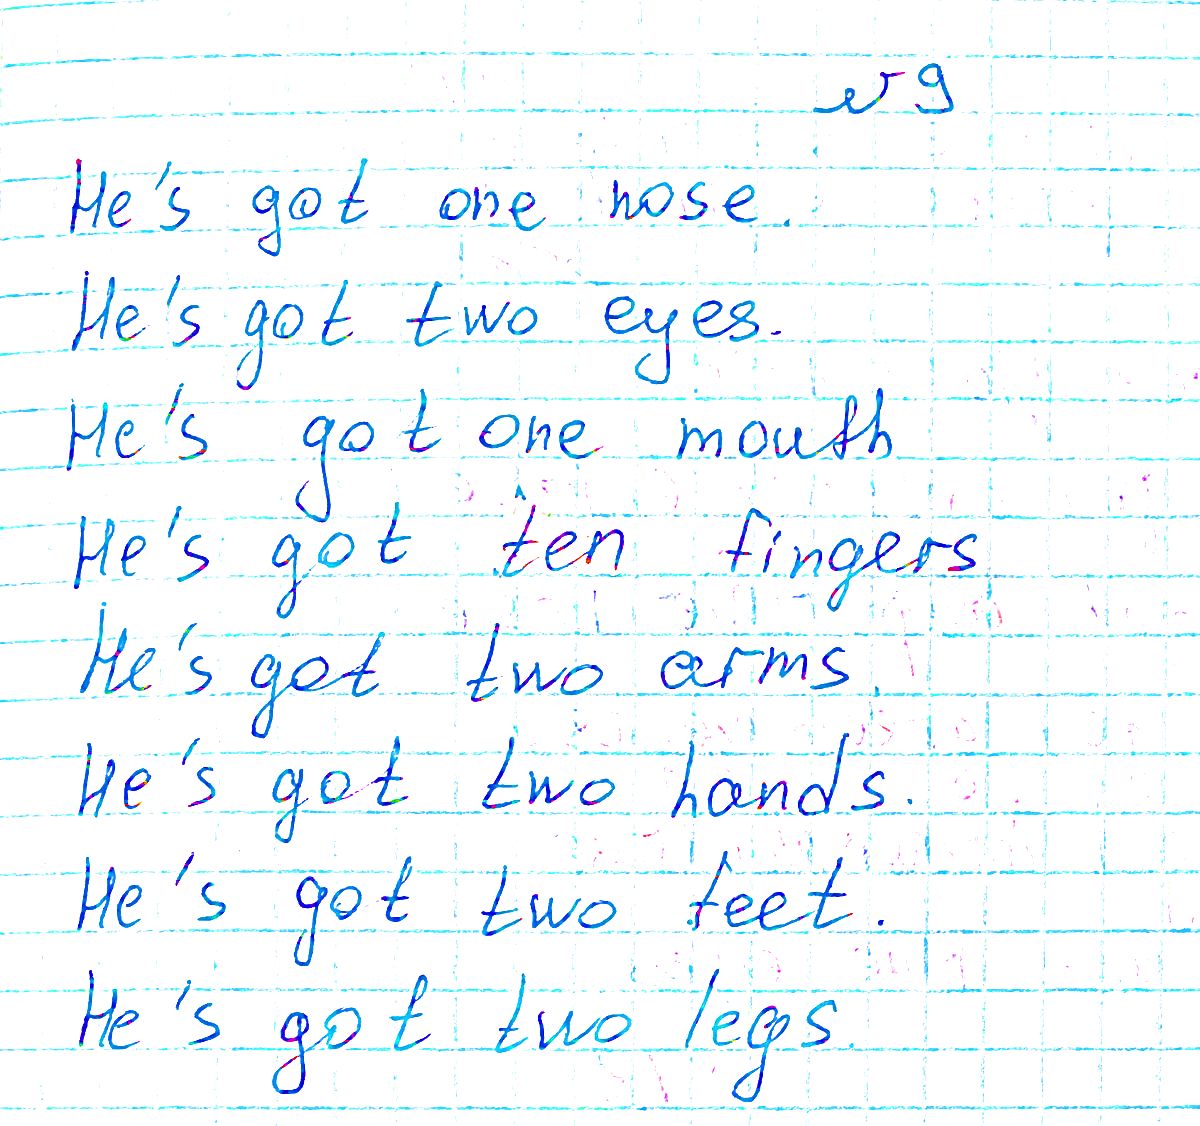 № 9
He's got one nose.
He's got two eyes.
He's got one mouth
He's got ten fingers
He's got two arms.
He's got two hands.
He's got two feet.
He's got two legs.